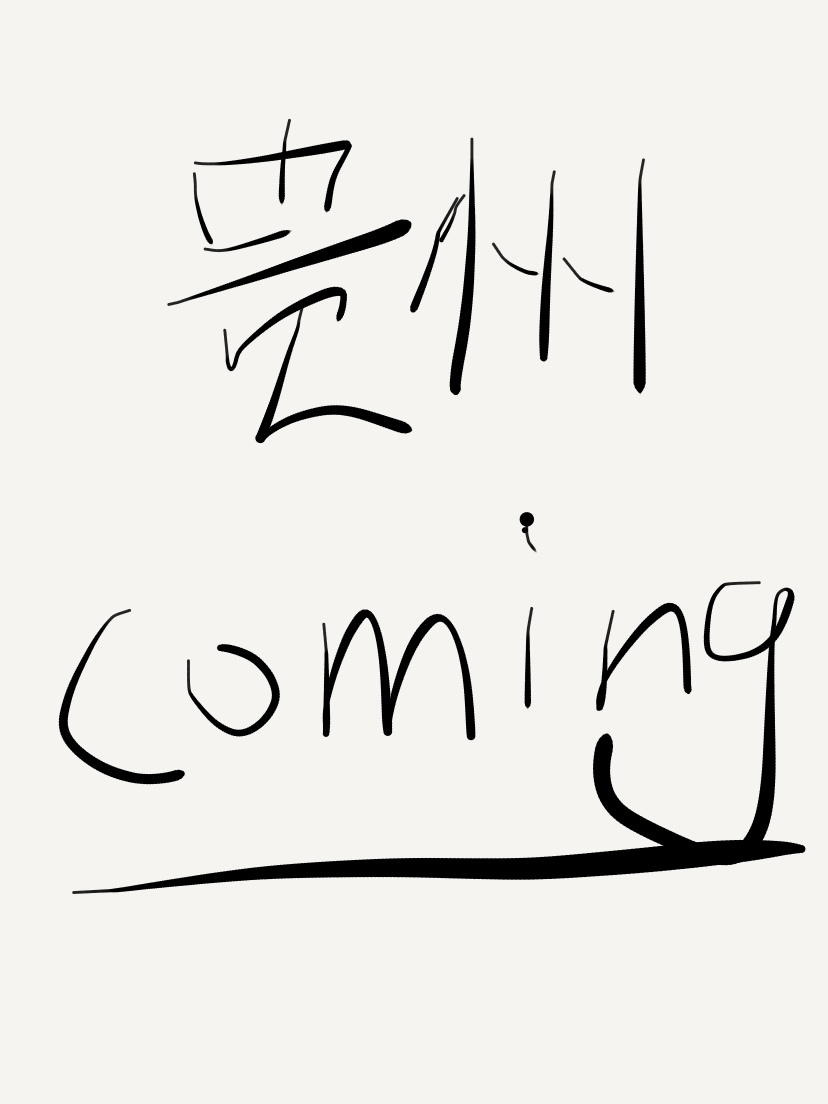 贵州
coming